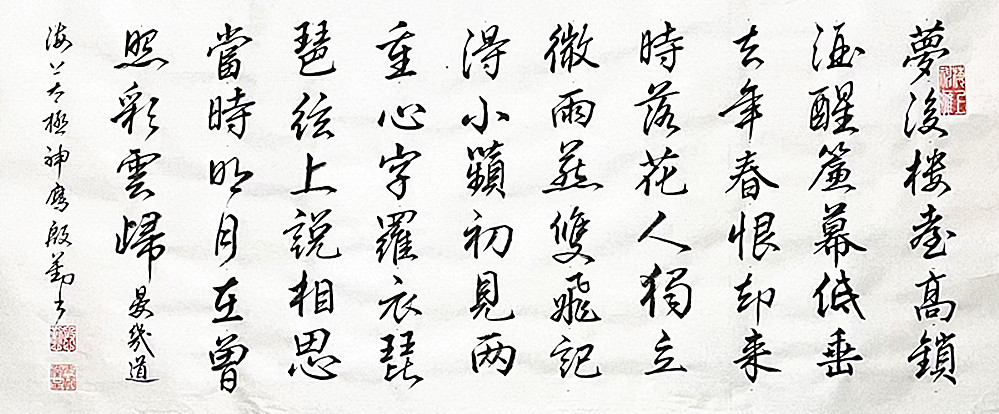 夢後楼臺高鎖
酒醒簾幕低垂
去年春恨却来
時落花人獨立
微雨燕雙飛記
得小蘋初見两
重心字羅衣琵
琶弦上説相思
當時明月在曾
照彩雲歸 晏幾道
海上太極神鷹殷勤书